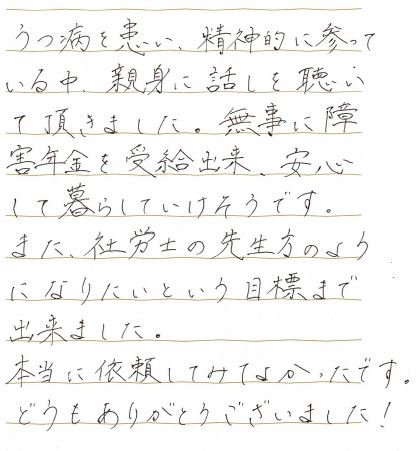 うつ病を患い、精神的に参って
いる中、親身に話しを聴い
て頂きました。無事に障
害年金を受給出来、安心
して暮らしていけそうです。
また、社労士の先生方のよう
になりたいという目標まで
出来ました。
本当に依頼してみてよかったです。
どうもありがとうございました！